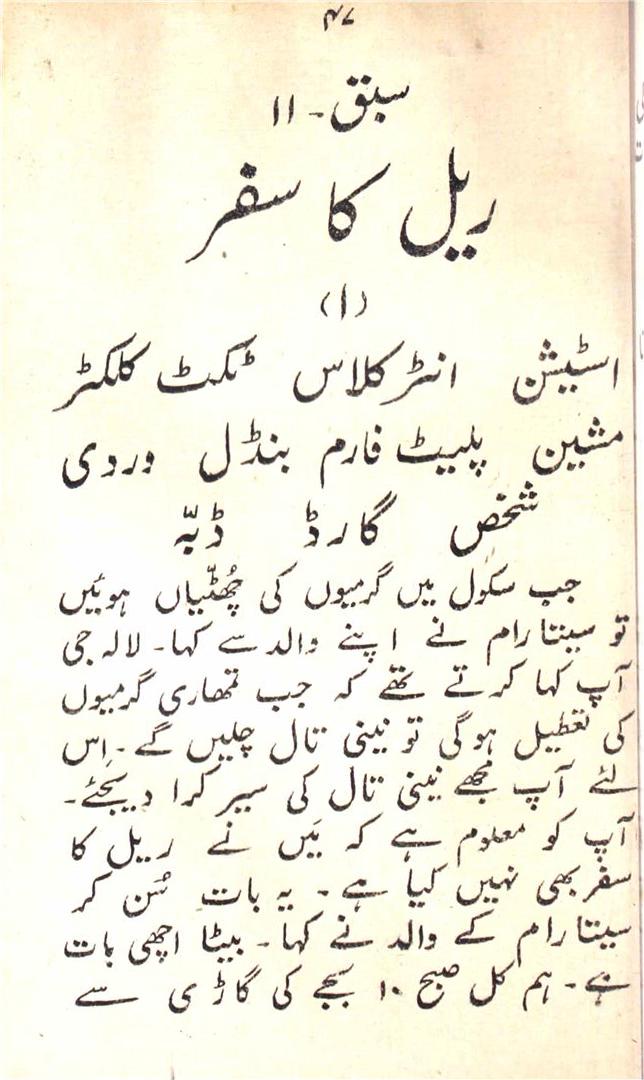 ۴۷
سبق - ۱۱
ریل کا سفر
(۱)
اسٹیشن انٹر کلاس ٹکٹ کلکٹر
مشین پلیٹ فارم بنڈل وردی
شخص گارڈ ڈبّہ
جب سکول میں گرمیوں کی چھُٹّیاں ہوئیں
تو سیتارام نے اپنے والد سے کہا۔ لالہ جی
آپ کہا کرتے تھے کہ جب تمھاری گرمیوں
کی تعطیل ہوگی تو نینی تال چلیں گے۔ اِس
لئے آپ مجھے نینی تال کی سیر کرا دیجئے۔
آپ کو معلوم ہے کہ مَیں نے ریل کا
سفر بھی نہیں کیا ہے۔ یہ بات سُن کر
سیتارام کے والد نے کہا۔ بیٹا اچھی بات
ہے۔ ہم کل صبح ۱۰ بجے کی گاڑی سے